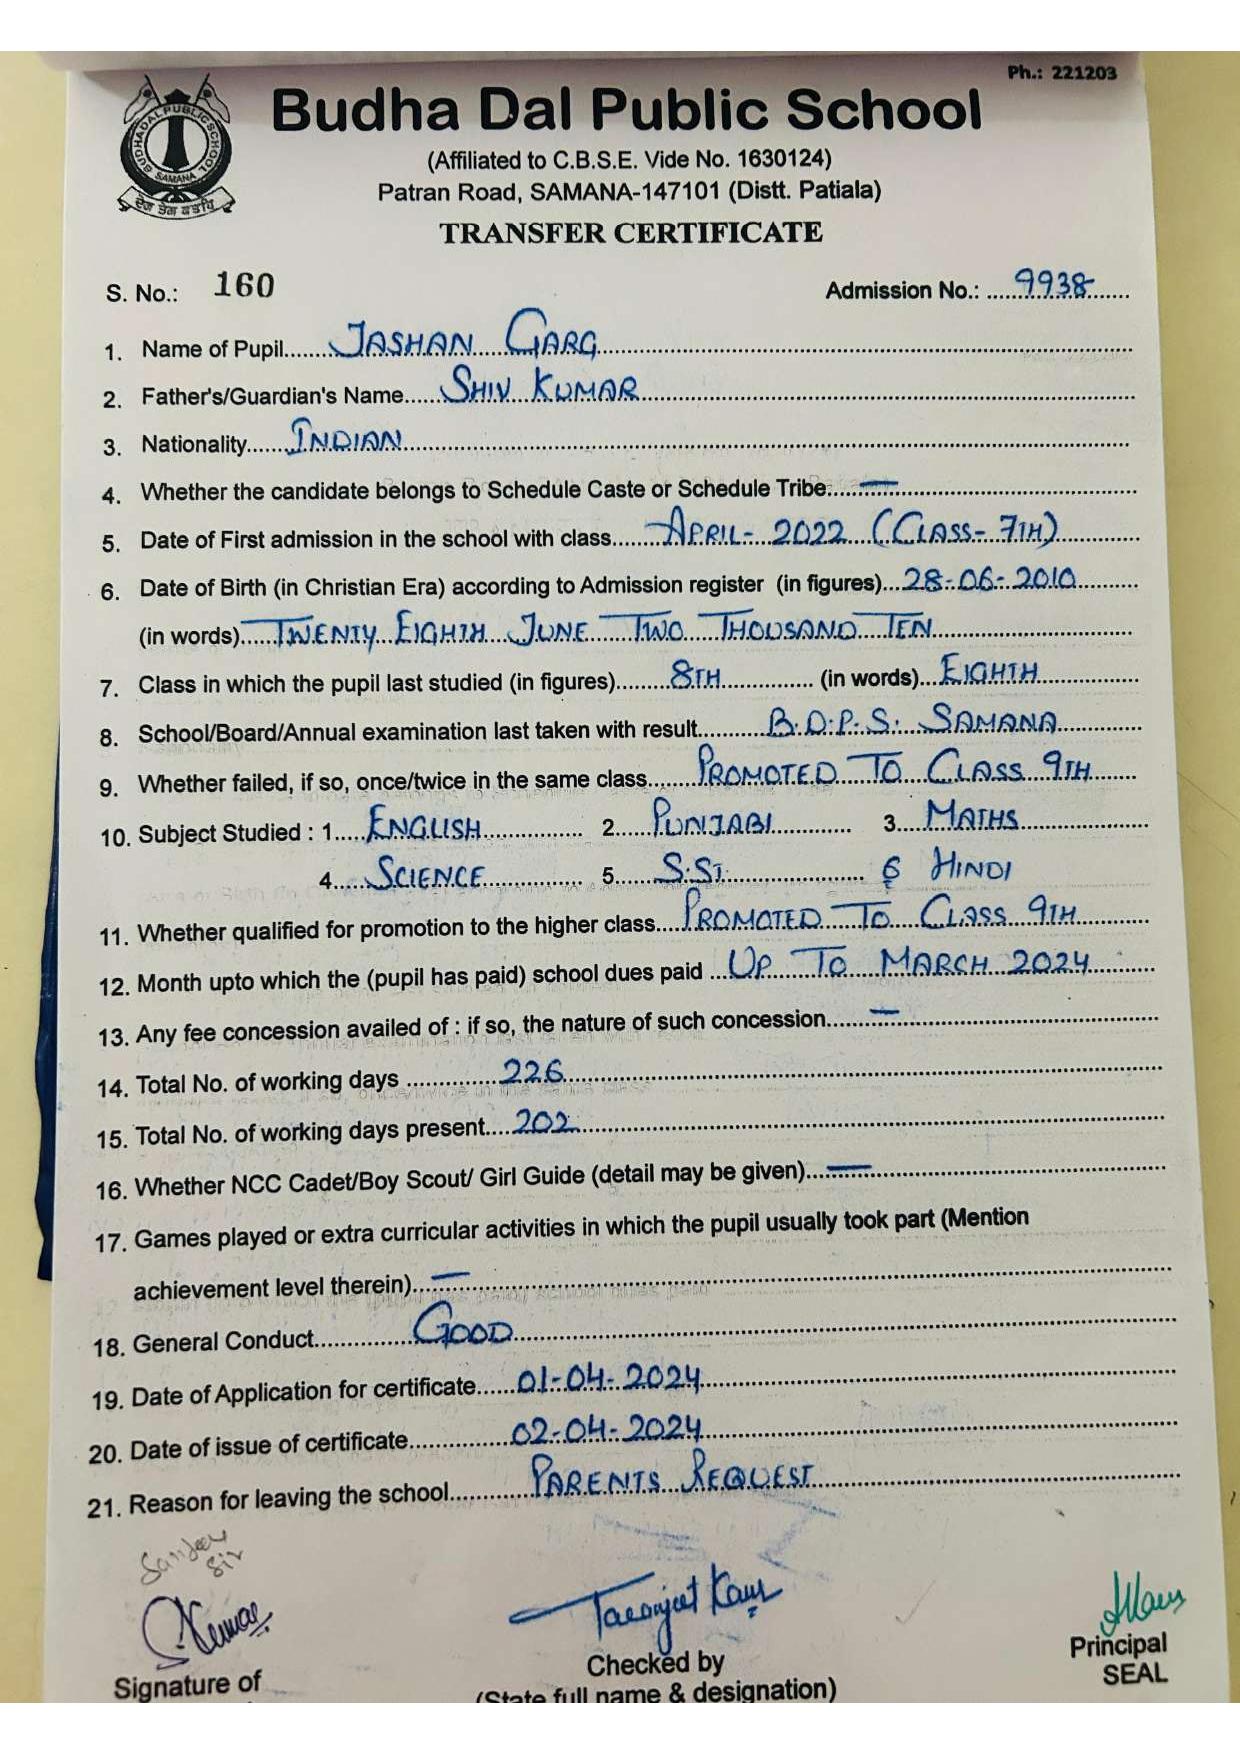 Ph.: 221203
BUDHADAL PUBLIC SCHOOL
SAMANA
Budha Dal Public School
(Affiliated to C.B.S.E. Vide No. 1630124)
Patran Road, SAMANA-147101 (Distt. Patiala)
TRANSFER CERTIFICATE
S. No.: 160 Admission No.: 9938
1. Name of Pupil JASHAN GARG
2. Father's/Guardian's Name SHIV KUMAR
3. Nationality INDIAN
4. Whether the candidate belongs to Schedule Caste or Schedule Tribe —
5. Date of First admission in the school with class APRIL- 2022 (CLASS- 7TH)
6. Date of Birth (in Christian Era) according to Admission register (in figures) 28-06-2010
(in words) TWENTY EIGHTH JUNE TWO THOUSAND TEN
7. Class in which the pupil last studied (in figures) 8TH (in words) EIGHTH
8. School/Board/Annual examination last taken with result B.D.P.S. SAMANA
9. Whether failed, if so, once/twice in the same class PROMOTED TO CLASS 9TH
10. Subject Studied : 1 ENGLISH 2 PUNJABI 3 MATHS
4 SCIENCE 5 S.ST. 6 HINDI
11. Whether qualified for promotion to the higher class PROMOTED TO CLASS 9TH
12. Month upto which the (pupil has paid) school dues paid UP TO MARCH 2024
13. Any fee concession availed of : if so, the nature of such concession —
14. Total No. of working days 226
15. Total No. of working days present 202
16. Whether NCC Cadet/Boy Scout/ Girl Guide (detail may be given) —
17. Games played or extra curricular activities in which the pupil usually took part (Mention
achievement level therein) —
18. General Conduct GOOD
19. Date of Application for certificate 01-04-2024
20. Date of issue of certificate 02-04-2024
21. Reason for leaving the school PARENTS REQUEST
Sanjeev
Sir
Kumar
Taranjeet Kaur
Signature of
Checked by
(State full name & designation)
Principal
SEAL